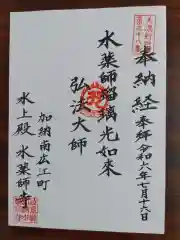 奉納経
奉拝 令和六年七月十六日
水薬師瑠璃光如来
弘法大師
加納南広江町
水上殿 水薬師寺